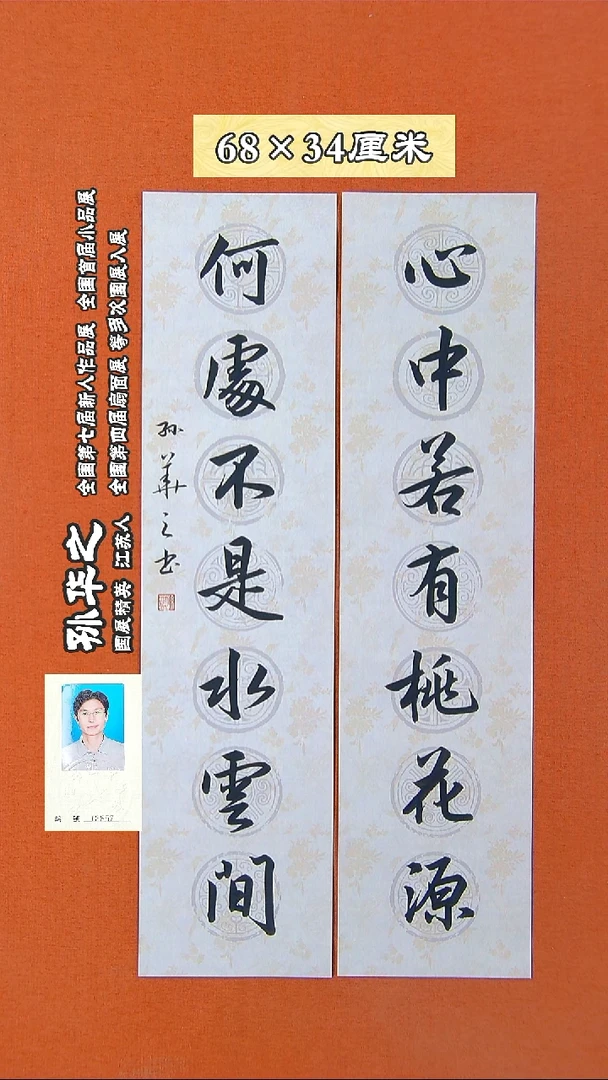 68×34厘米
心中若有桃花源
何處不是水雲間
孙華之书
孙华之
国展精英 江苏人
全国第七届新人作品展 全国首届小品展
全国第四届扇面展 等多次国展入展
编 號